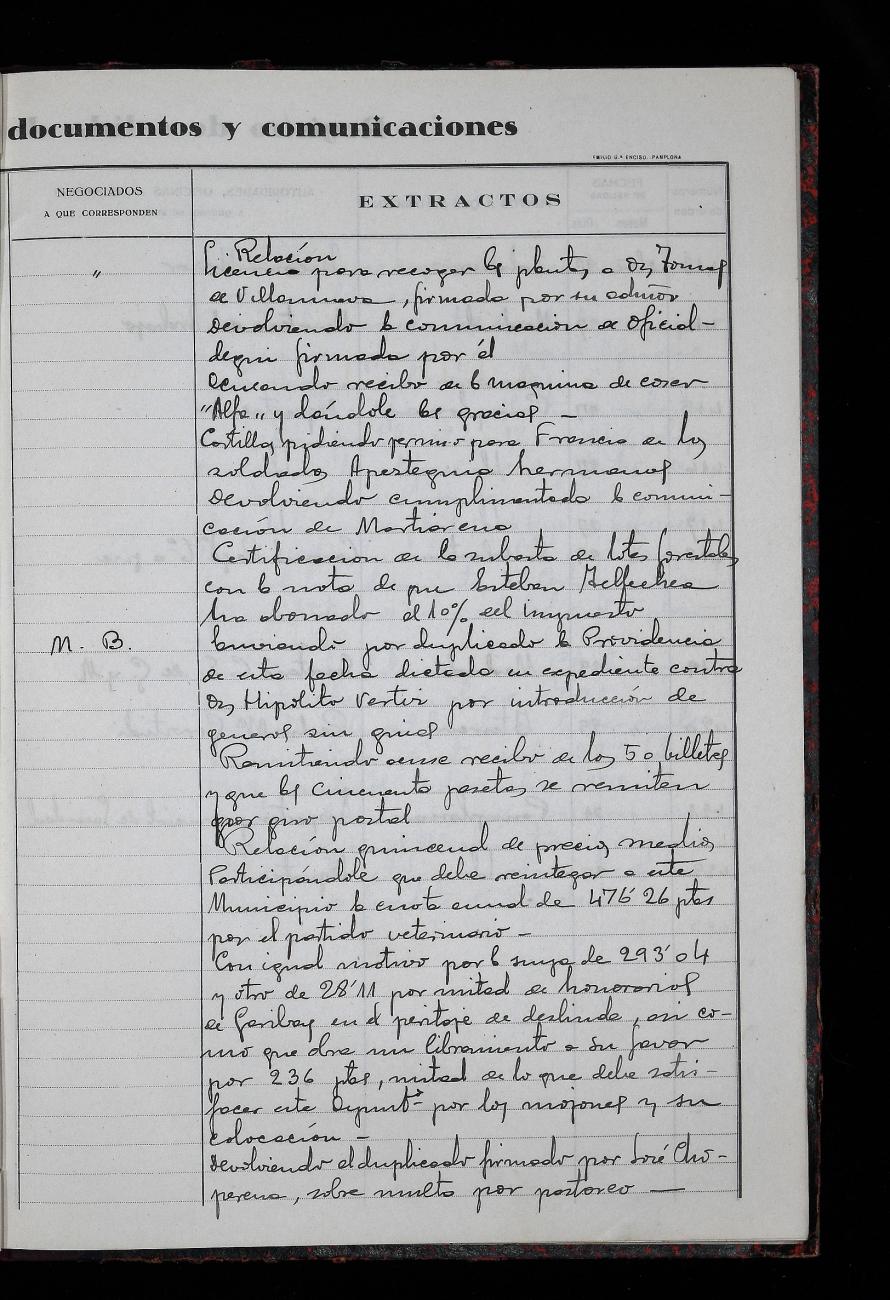 documentos y comunicaciones
EMILIO G.ª ENCISO. PAMPLONA
NEGOCIADOS
A QUE CORRESPONDEN
EXTRACTOS
Relación
" Licencia para recoger las plantas a D. Tomas
de Villanueva, firmada por su admor
Devolviendo la comunicacion de Oficial-
degui firmada por él
Acusando recibo de la maquina de coser
"Alfa" y dándole las gracias -
Costilla pidiendo permiso para Francia de los
soldados Apezteguia hermanos
Devolviendo cumplimentada la comuni-
cación de Martiarena
Certificacion de la subasta de lotes forestales
con la nota de que Esteban
ha abonado el 10% del impuesto
M. B. Enviando por duplicado la Providencia
de esta fecha dictada en expediente contra
D. Hipólito Vertiz por introducción de
generos sin guias
Remitiendo acuse recibo de los 50 billetes
y que las cincuenta pesetas se remiten
por giro postal
Relación quincenal de precios medios
Participándole que debe reintegar a este
Municipio la cuota anual de 476'26 ptas
por el partido veterinario -
Con igual motivo por la suya de 293'04
y otro de 28'11 por mitad de honorarios
de Garibay en el peritaje de deslinde, asi co-
mo que obra un libramiento a su favor
por 236 ptas, mitad de lo que debe satis-
facer este Ayunt.º por los mojones y su
colocación -
Devolviendo el duplicado firmado por José Cho-
perena, sobre multa por pastoreo -